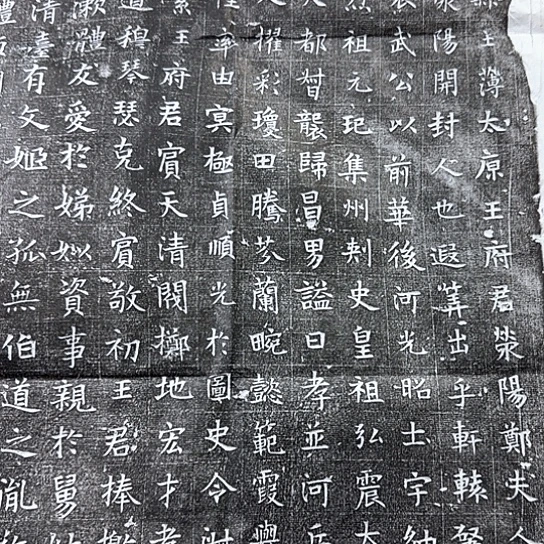 主薄太原王府君滎陽鄭夫人
陽開封人也遐筭出乎軒轅
武公以前華後河光昭士宇
祖元玘集州刾史皇祖弘震
都督襲歸昌男謚曰孝並河
擢彩瓊田騰芬蘭畹懿範霞
率由冥極貞順光於圖史令
王府君賔天清閥擲地宏才
道穆琴瑟克終賔敬初王君捧
漱醴友愛於娣姒資事親於舅
清臺有文姬之孤無伯道之胤